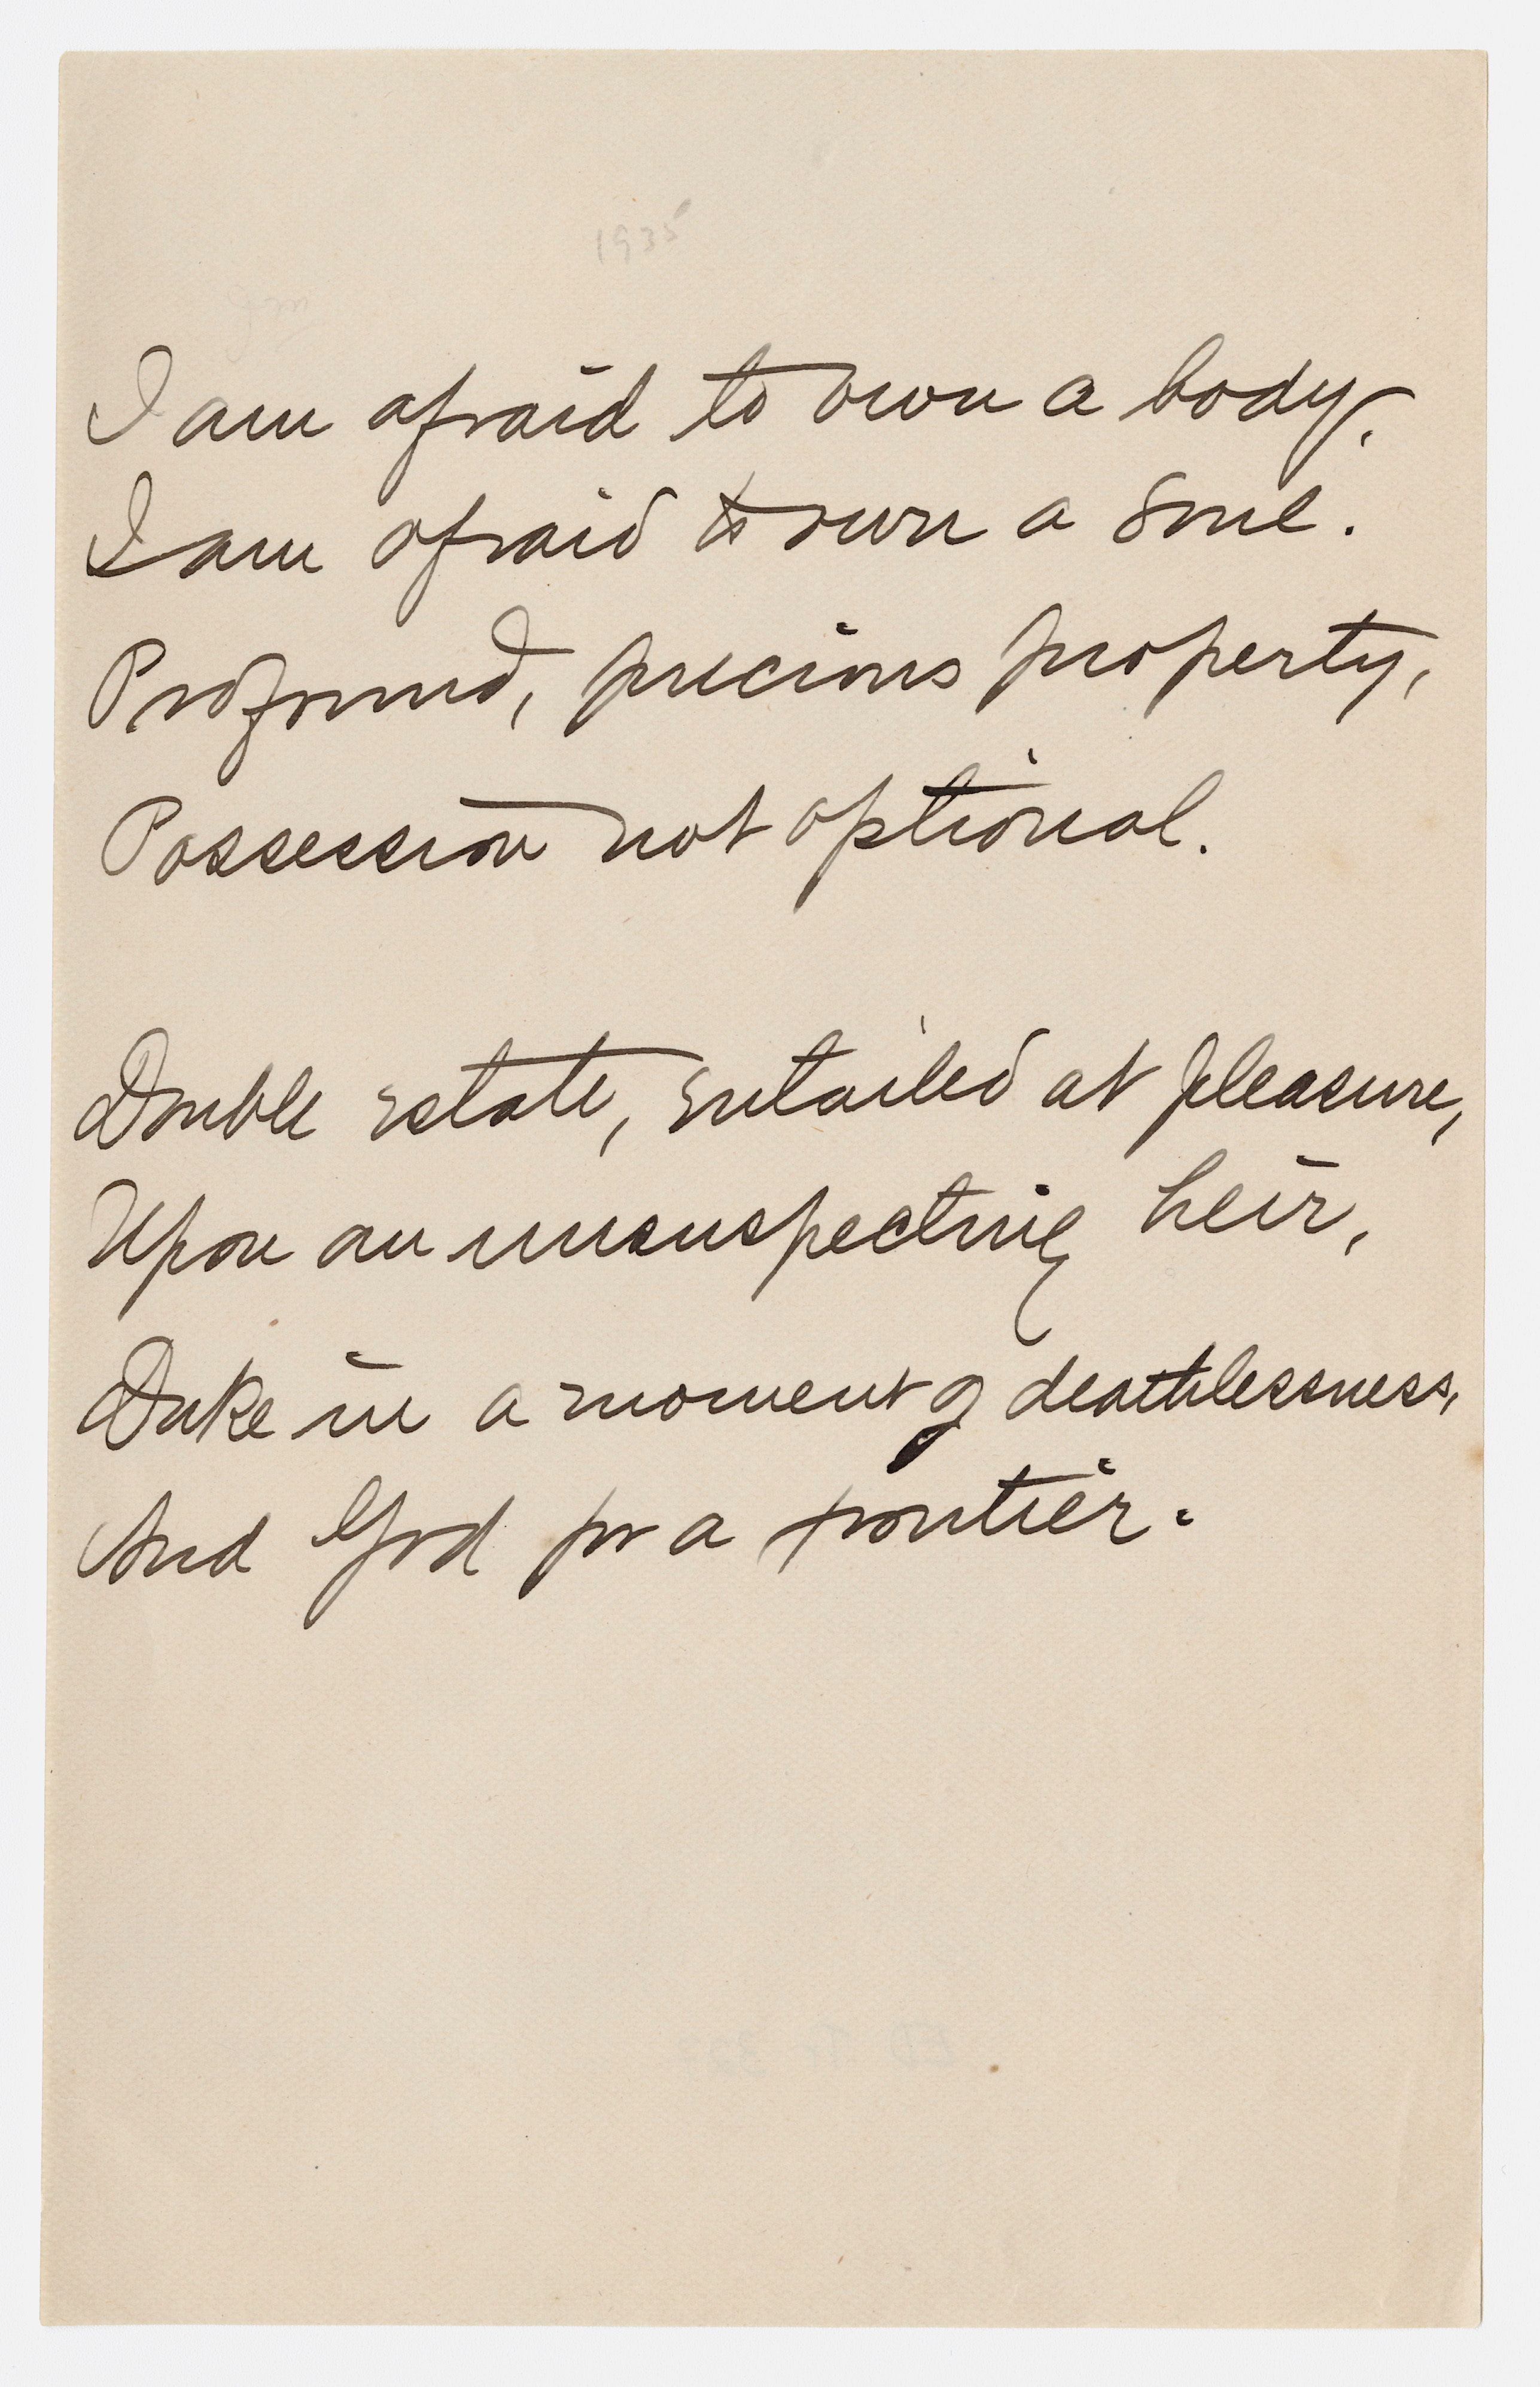 1935
I am afraid to own a body.
I am afraid to own a soul.
Profound, precious property,
Possession not optional.
Double estate, entailed at pleasure,
Upon an unsuspecting heir,
Duke in a moment of deathlessness,
And God for a frontier.